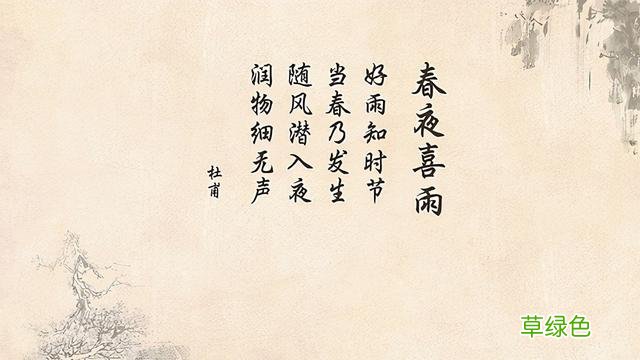 春夜喜雨
好雨知时节
当春乃发生
随风潜入夜
润物细无声
杜甫
草绿色